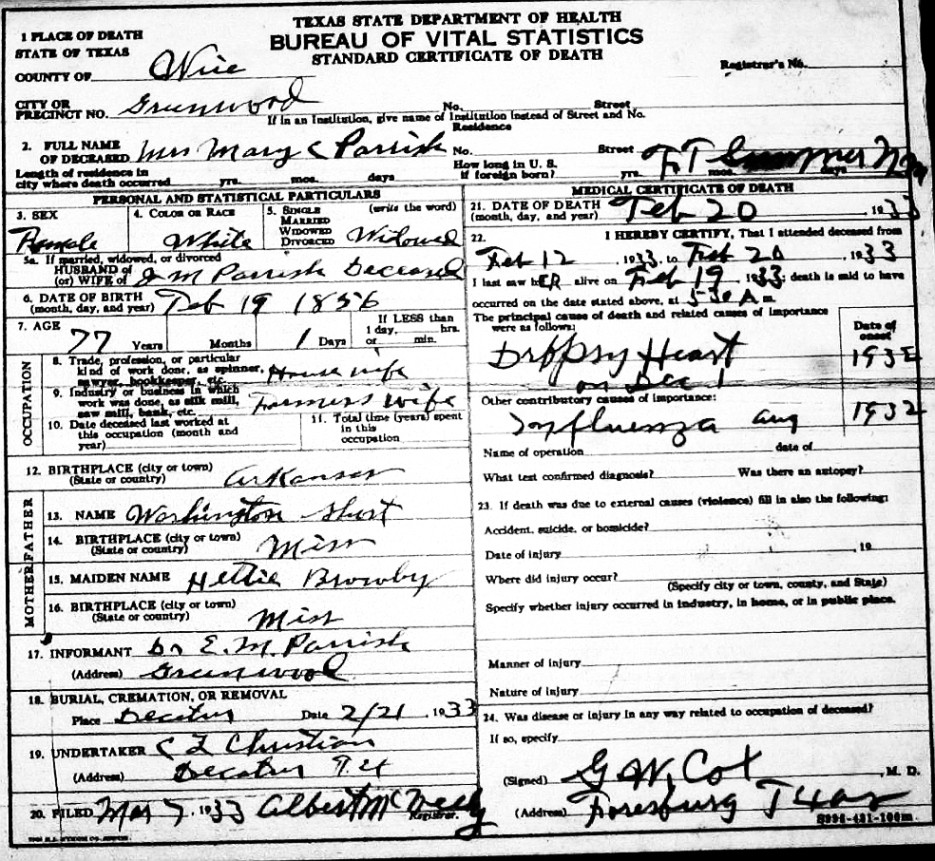 TEXAS STATE DEPARTMENT OF HEALTH
BUREAU OF VITAL STATISTICS
STANDARD CERTIFICATE OF DEATH
1 PLACE OF DEATH
STATE OF TEXAS
COUNTY OF Wise
Registrar's No.
CITY OR PRECINCT NO. Greenwood No. Street
If in an Institution, give name of Institution instead of Street and No.
Residence
2. FULL NAME OF DECEASED Mrs Mary C Parrish No. Street Ft Sumner N
Length of residence in city where death occurred yrs. mos. days How long in U. S. if foreign born? yrs. mos. days
PERSONAL AND STATISTICAL PARTICULARS
3. SEX Female
4. COLOR OR RACE White
5. SINGLE MARRIED WIDOWED DIVORCED (write the word) Widowed
5a. If married, widowed, or divorced
HUSBAND of (or) WIFE of J M Parrish Deceased
6. DATE OF BIRTH (month, day, and year) Feb 19 1856
7. AGE 77 Years Months 1 Days If LESS than 1 day, hrs. or min.
OCCUPATION
8. Trade, profession, or particular kind of work done, as spinner, sawyer, bookkeeper, etc. House wife
9. Industry or business in which work was done, as silk mill, saw mill, bank, etc. Farmers wife
10. Date deceased last worked at this occupation (month and year)
11. Total time (years) spent in this occupation
12. BIRTHPLACE (city or town) (State or country) Arkansas
FATHER
13. NAME Washington Short
14. BIRTHPLACE (city or town) (State or country) Miss
MOTHER
15. MAIDEN NAME Hettie
16. BIRTHPLACE (city or town) (State or country) Miss
17. INFORMANT Dr E. M. Parrish
(Address) Greenwood
18. BURIAL, CREMATION, OR REMOVAL
Place Decatur Date 2/21, 1933
19. UNDERTAKER C L Christian
(Address) Decatur Tex
20. FILED Mar 7, 1933 Albert McNeely Registrar.
MEDICAL CERTIFICATE OF DEATH
21. DATE OF DEATH (month, day, and year) Feb 20 1933
22. I HEREBY CERTIFY, That I attended deceased from
Feb 12, 1933, to Feb 20, 1933
I last saw hER alive on Feb 19 1933; death is said to have
occurred on the date stated above, at 530 Am
The principal cause of death and related causes of importance were as follows:
Date of onset
Dropsy Heart 1932
on Dec 1
Other contributory causes of importance:
Influenza Aug 1932
Name of operation date of
What test confirmed diagnosis? Was there an autopsy?
23. If death was due to external causes (violence) fill in also the following:
Accident, suicide, or homicide?
Date of injury , 19
Where did injury occur?
(Specify city or town, county, and State)
Specify whether injury occurred in industry, in home, or in public place.
Manner of injury
Nature of injury
24. Was disease or injury in any way related to occupation of deceased?
If so, specify
(Signed) G W. Cox, M. D.
(Address) Foresburg Texas